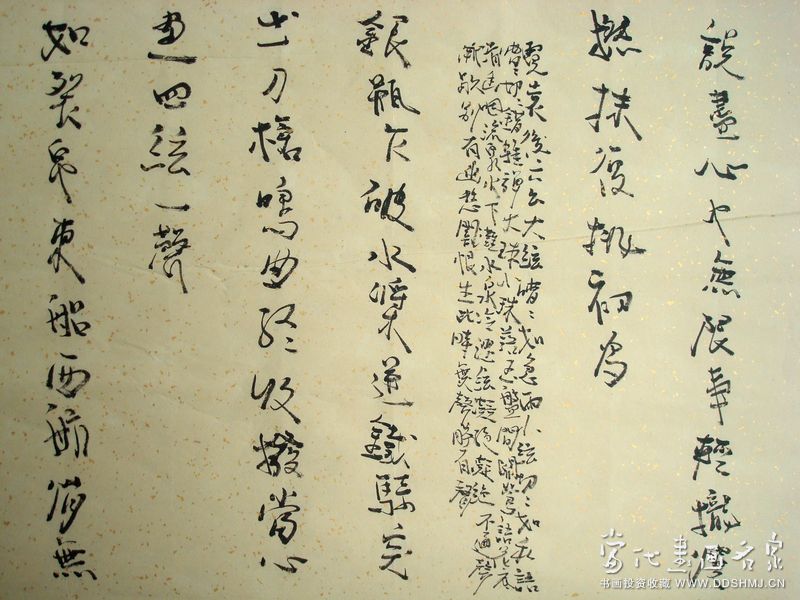 說盡心中無限事輕攏慢
撚抹復挑初為
霓裳後六幺大絃嘈〻如急雨小絃切〻如私語
嘈〻切〻錯雜彈大珠小珠落玉盤間關鶯語花底
滑幽咽流泉水下灘水泉冷澀絃凝絕凝絕不通聲
漸歇別有幽愁闇恨生此時無聲勝有聲
銀瓶乍破水漿迸鐵騎突
出刀槍鳴曲終收撥當心
畫四絃一聲
如裂帛東船西舫悄無
當代書畫名家
书画投资收藏 WWW.DDSHMJ.CN